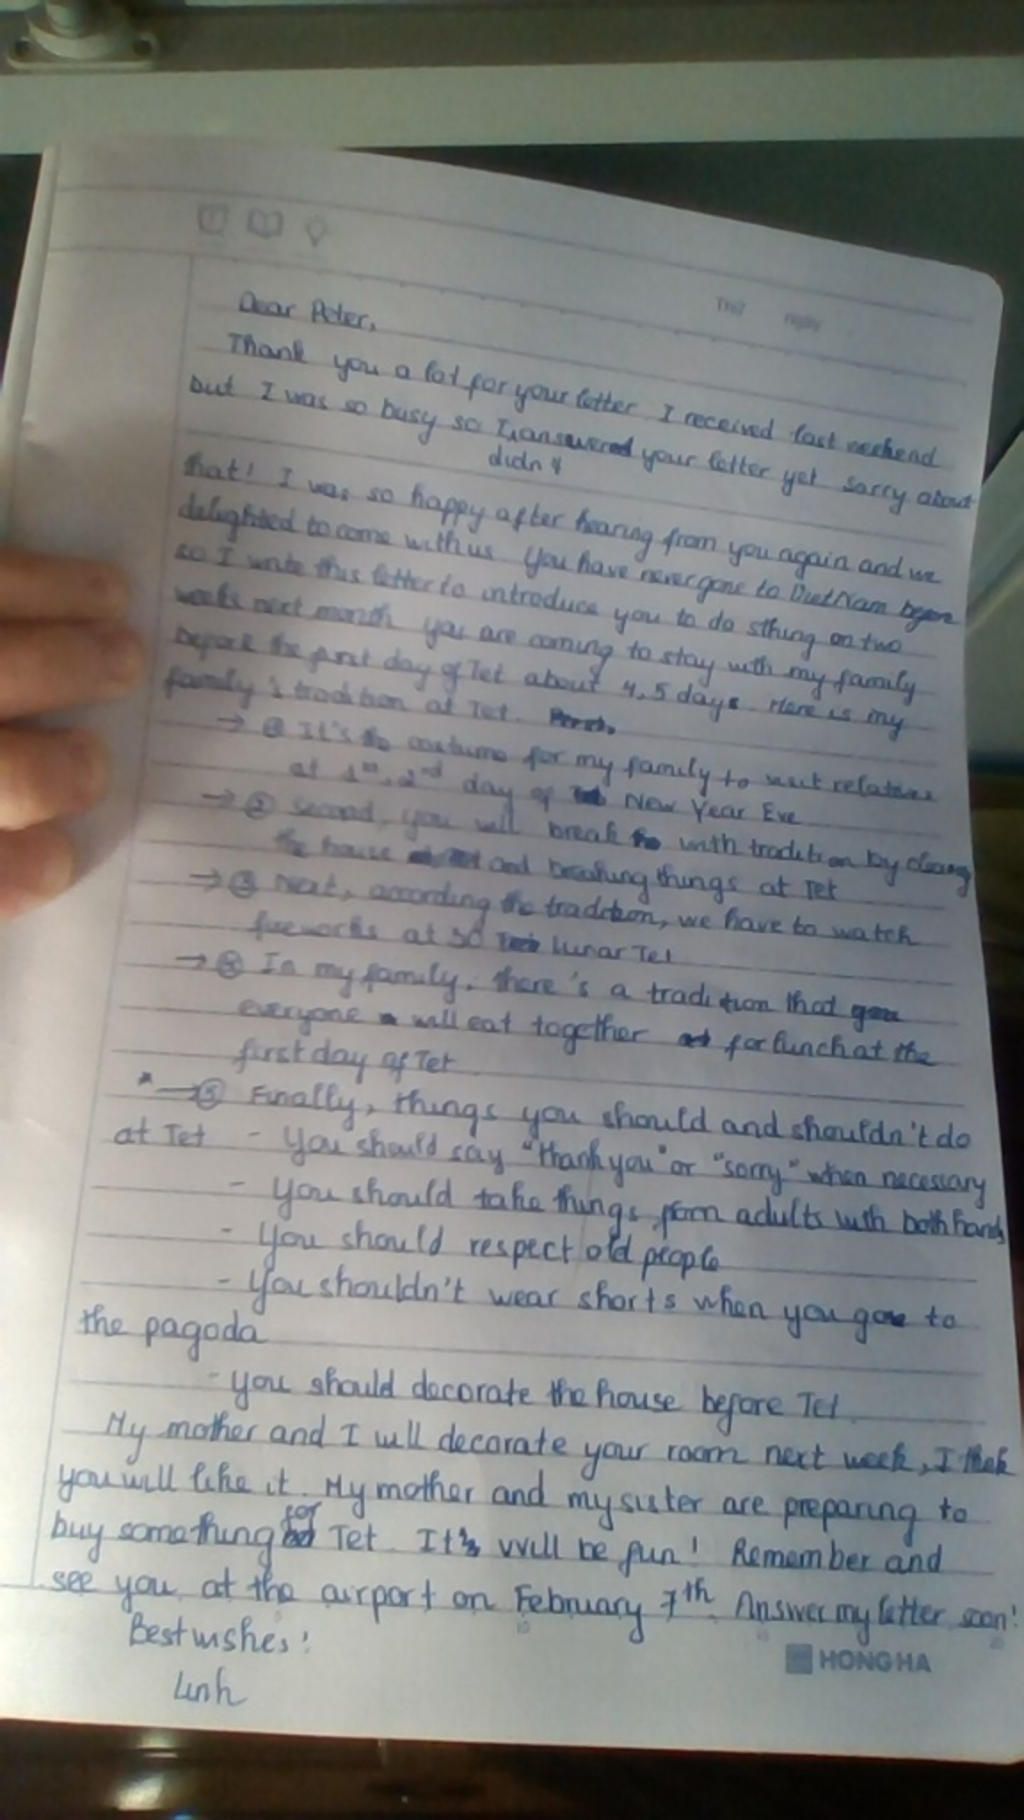 Thứ ngày
Dear Peter,
Thank you a lot for your letter I received last weekend
but I was so busy so I answered your letter yet sorry about
didn't
that! I was so happy after hearing from you again and we
delighted to come with us You have never gone to Viet Nam before
so I write this letter to introduce you to do sthing on two
weeks next month you are coming to stay with my family
before the first day of Tet about 4,5 days. Here is my
family's tradition at Tet.
→ ① It's costume for my family to visit relatives
at 1st, 2nd day of New Year Eve
→ ② Second, you will break with tradition by cleaning
the house and breaking things at Tet
→ ③ Next, according the tradition, we have to watch
fireworks at 30 Lunar Tet
→ ④ In my family, there's a tradition that
everyone will eat together for lunch at the
first day of Tet
* → ⑤ Finally, things you should and shouldn't do
at Tet - You should say "thank you" or "sorry" when necessary
- You should take things from adults with both hands
- You should respect old people
- You shouldn't wear shorts when you go to
the pagoda
- You should decorate the house before Tet
My mother and I will decorate your room next week, I think
you will like it. My mother and my sister are preparing to
buy something for Tet. It will be fun! Remember and
see you at the airport on February 7th. Answer my letter soon!
Best wishes!
Linh
HONG HA